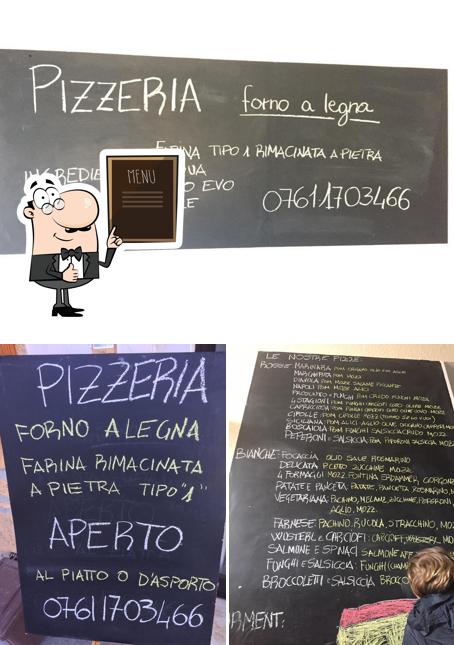 PIZZERIA forno a legna
FARINA TIPO 1 RIMACINATA A PIETRA
EVO
0761.1703466
MENU
PIZZERIA
FORNO A LEGNA
FARINA RIMACINATA
A PIETRA TIPO "1"
APERTO
AL PIATTO O D'ASPORTO
0761 1703466
LE NOSTRE PIZZE:
ROSSE: MARINARA POM. ORIGANO AGLIO
MARGHERITA POM. MOZZ.
DIAVOLA POM. MOZZ. SALAME PICCANTE
NAPOLI POM. MOZZ. ALICI
PROSCIUTTO e FUNGHI POM. CRUDO FUNGHI MOZZ.
4 STAGIONI POM. FUNGHI CARCIOFI
CAPRICCIOSA POM. FUNGHI CARCIOFI
CIPOLLE
SICILIANA POM. ALICI
BOSCAIOLA POM. FUNGHI SALSICCIA MOZZ.
PEPERONI e SALSICCIA POM. PEPERONI, SALSICCIA, MOZZ.
BIANCHE: FOCACCIA OLIO SALE ROSMARINO
DELICATA P. COTTO ZUCCHINE MOZZ.
4 FORMAGGI MOZZ. FONTINA EDAMMER, GORGONZ
PATATE e PANCETTA PATATE, PANCETTA ROSMARINO, M
VEGETARIANA PACHINO, MELANZ. ZUCCHINE, PEPERONI
AGLIO, MOZZ.
FARNESE PACHINO, RUCOLA, STRACCHINO, MOZ
WÜSTERL e CARCIOFI CARCIOFI, WÜSTERL, MO
SALMONE E SPINACI SALMONE AFF
FUNGHI E SALSICCIA: FUNGHI (CHAM
BROCCOLETTI e SALSICCIA BROCCO